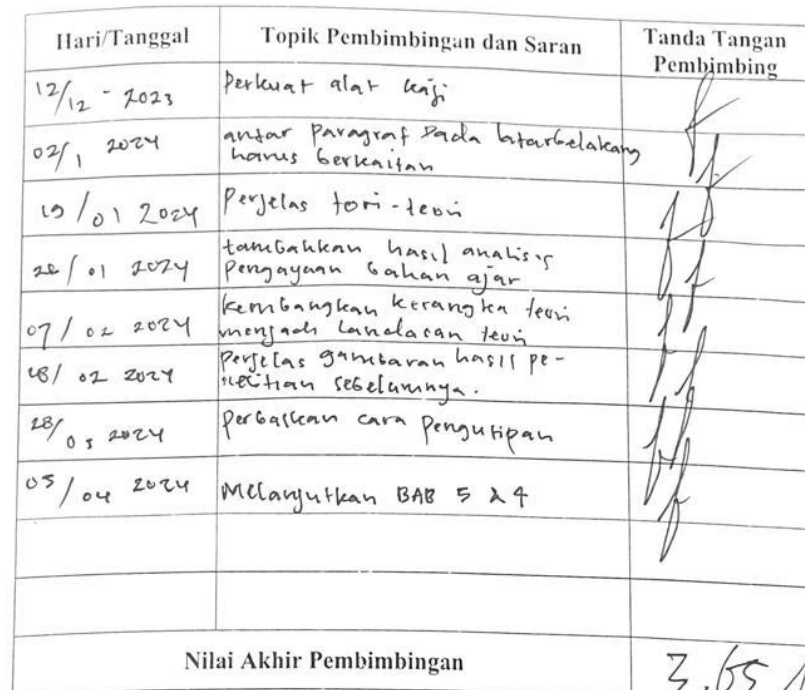 Hari/Tanggal
Topik Pembimbingan dan Saran
Tanda Tangan
Pembimbing
12/12 - 2023
Perkuat alat kaji
02/1 2024
antar paragraf pada latarbelakang
harus berkaitan
19/01 2024
Perjelas teori-teori
/01 2024
tambahkan hasil analisis
Pengayaan bahan ajar
07/02 2024
kembangkan kerangka teori
menjadi landasan teori
/02 2024
Perjelas gambaran hasil pe-
nelitian sebelumnya.
28/03 2024
Perbaikan cara pengutipan
05/04 2024
Melanjutkan BAB 5 & 4
Nilai Akhir Pembimbingan
3.65